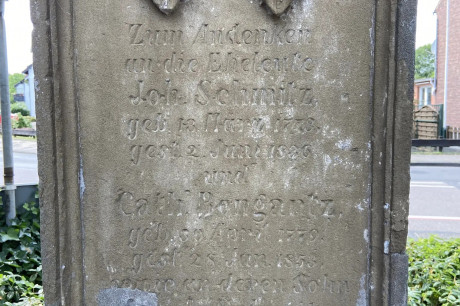 Zum Andenken
an die Eheleute
Joh. Schmitz,
geb. 18 März 1773,
gest. 2. Juni 1826
und
Cath. Bongartz,
geb. April 1779,
gest. 28. Jan. 1853
sowie an deren Sohn